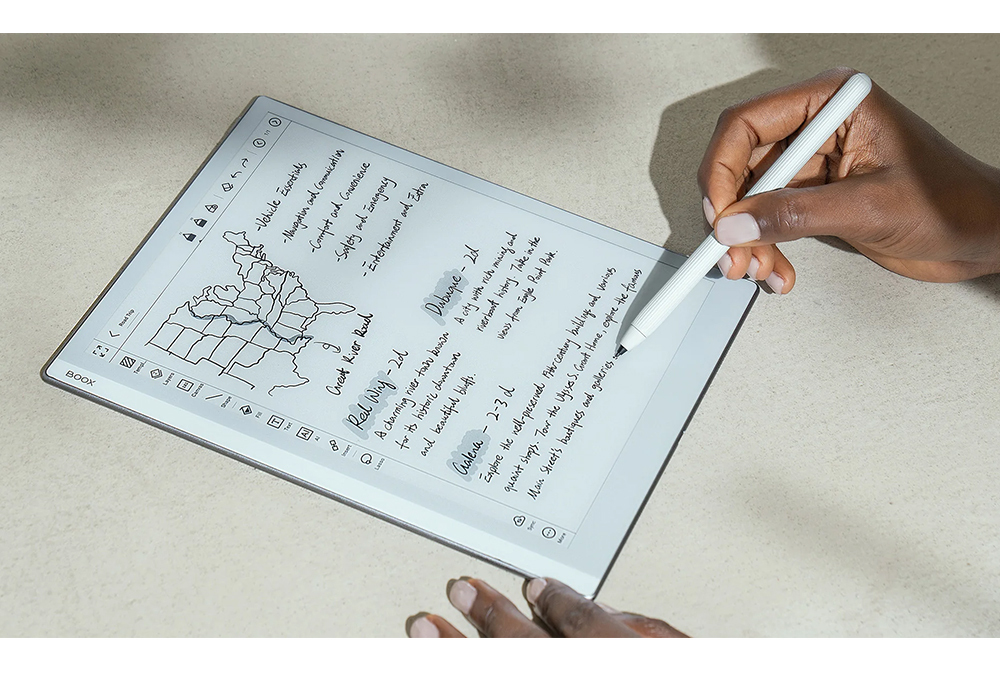 BOOX
Road Trip
1/1
Brush
Layers
Canvas
Shape
Fill
Text
AI
Insert
Lasso
Sync
More
-Vehicle Essentials
-Navigation and Communication
-Comfort and Convenience
-Safety and Emergency
-Entertainment and Extra
Great River Road
Red Wing - 2d
A charming river town known
for its historic downtown
and beautiful bluffs.
Dubuque - 2d
A city with rich mining and
riverboat history. Take in the
views from Eagle Point Park.
Galena - 2-3 d
Explore the well-preserved 19th-century buildings and various
quaint shops. Tour the Ulysses S. Grant Home, explore the famous
Main Street's boutiques and galleries,